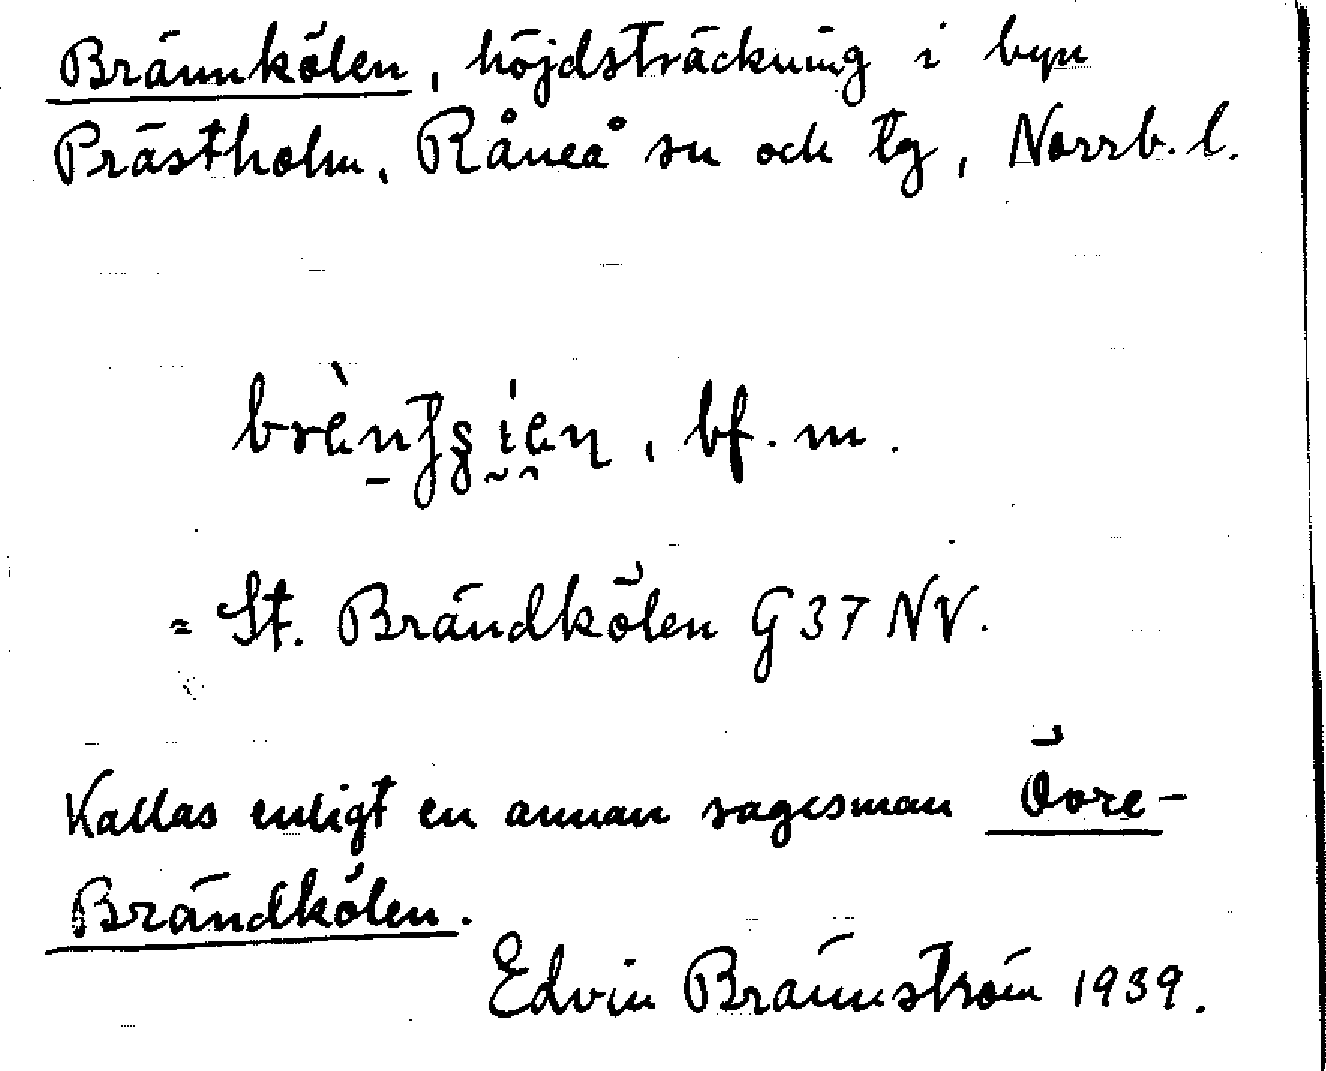 Brännkölen, höjdsträckning i byn
Prästholm, Råneå sn och tg, Norrb. l.
bf. m.
= St. Brändkölen G 37 NV.
Kallas enligt en annan sagesman Övre-
Brändkölen.
Edvin Brännström 1939.